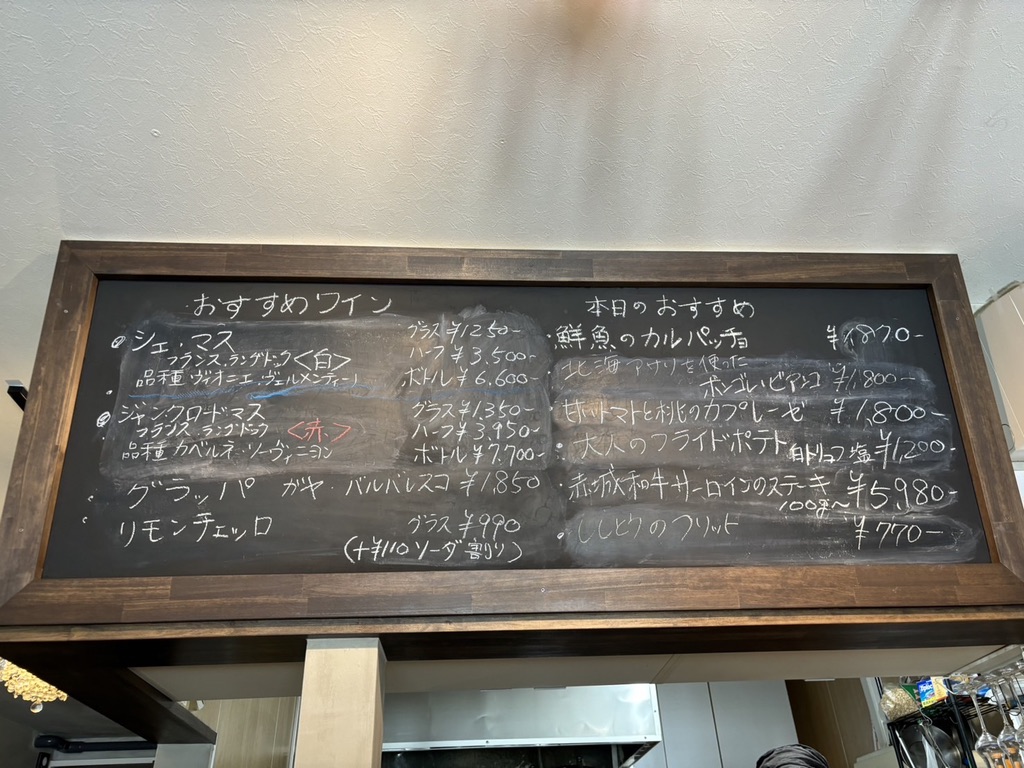 おすすめワイン
シェ・マス グラス ¥1250-
フランス.ラングドック <白> ハーフ ¥3.500-
品種 ヴィオニエ.ヴェルメンティーノ ボトル ¥6.600-
ジャン.クロードマス グラス ¥1350-
フランス.ラングドック <赤> ハーフ ¥3.950-
品種 カベルネ・ソーヴィニヨン ボトル ¥7.700-
グラッパ ガヤ・バルバレスコ ¥1,850
リモンチェッロ グラス ¥990
(+¥110 ソーダ割り)
本日のおすすめ
・鮮魚のカルパッチョ ¥1,870-
北海アサリを使った
ボンゴレ・ビアンコ ¥1,800-
・甘いトマトと桃のカプレーゼ ¥1,800-
・大人のフライドポテト 白トリュフ塩 ¥1,200-
・赤城和牛サーロインのステーキ ¥5,980-
100g~
・ししとうのフリット ¥770-